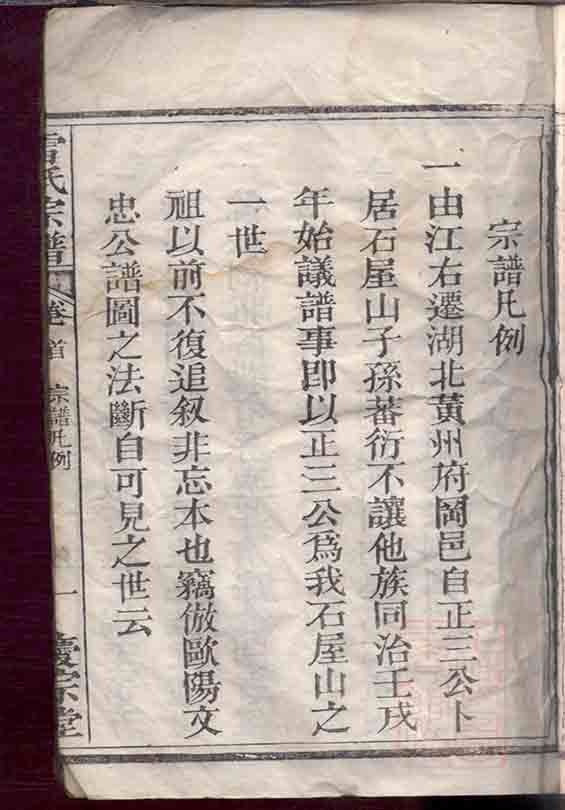 宗譜凡例
一由江右遷湖北黃州府岡邑自正三公卜
居石屋山子孫蕃衍不讓他族同治壬戌
年始議譜事即以正三公爲我石屋山之
一世
祖以前不復追叙非忘本也竊倣歐陽文
忠公譜圖之法斷自可見之世云
氏宗譜 卷首 宗譜凡例 一 慶宗堂